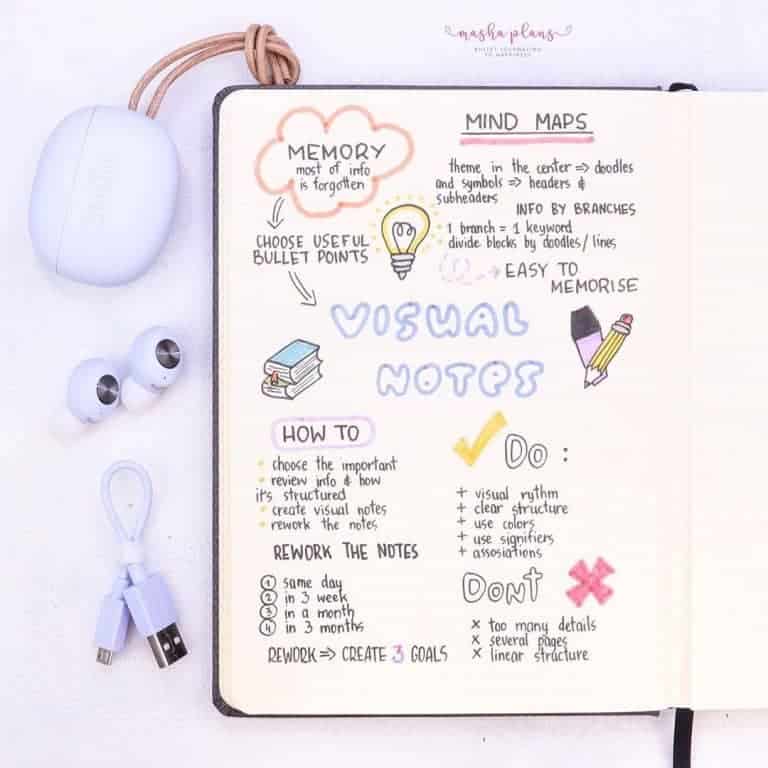 masha plans
BULLET JOURNALING
TO HAPPINESS
MEMORY
most of info
is forgotten
CHOOSE USEFUL
BULLET POINTS
MIND MAPS
theme in the center => doodles
and symbols => headers &
subheaders
INFO BY BRANCHES
1 branch = 1 keyword
divide blocks by doodles/lines
EASY TO
MEMORISE
VISUAL
NOTES
HOW TO
• choose the important
• review info & how
it's structured
• create visual notes
• rework the notes
REWORK THE NOTES
1 same day
2 in 3 week
3 in a month
4 in 3 months
REWORK => CREATE 3 GOALS
Do :
+ visual rythm
+ clear structure
+ use colors
+ use signifiers
+ assosiations
Dont
x too many details
x several pages
x linear structure